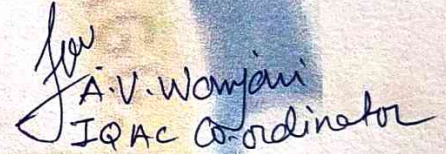 for
A.V. Wanjari
IQAC Co-ordinator